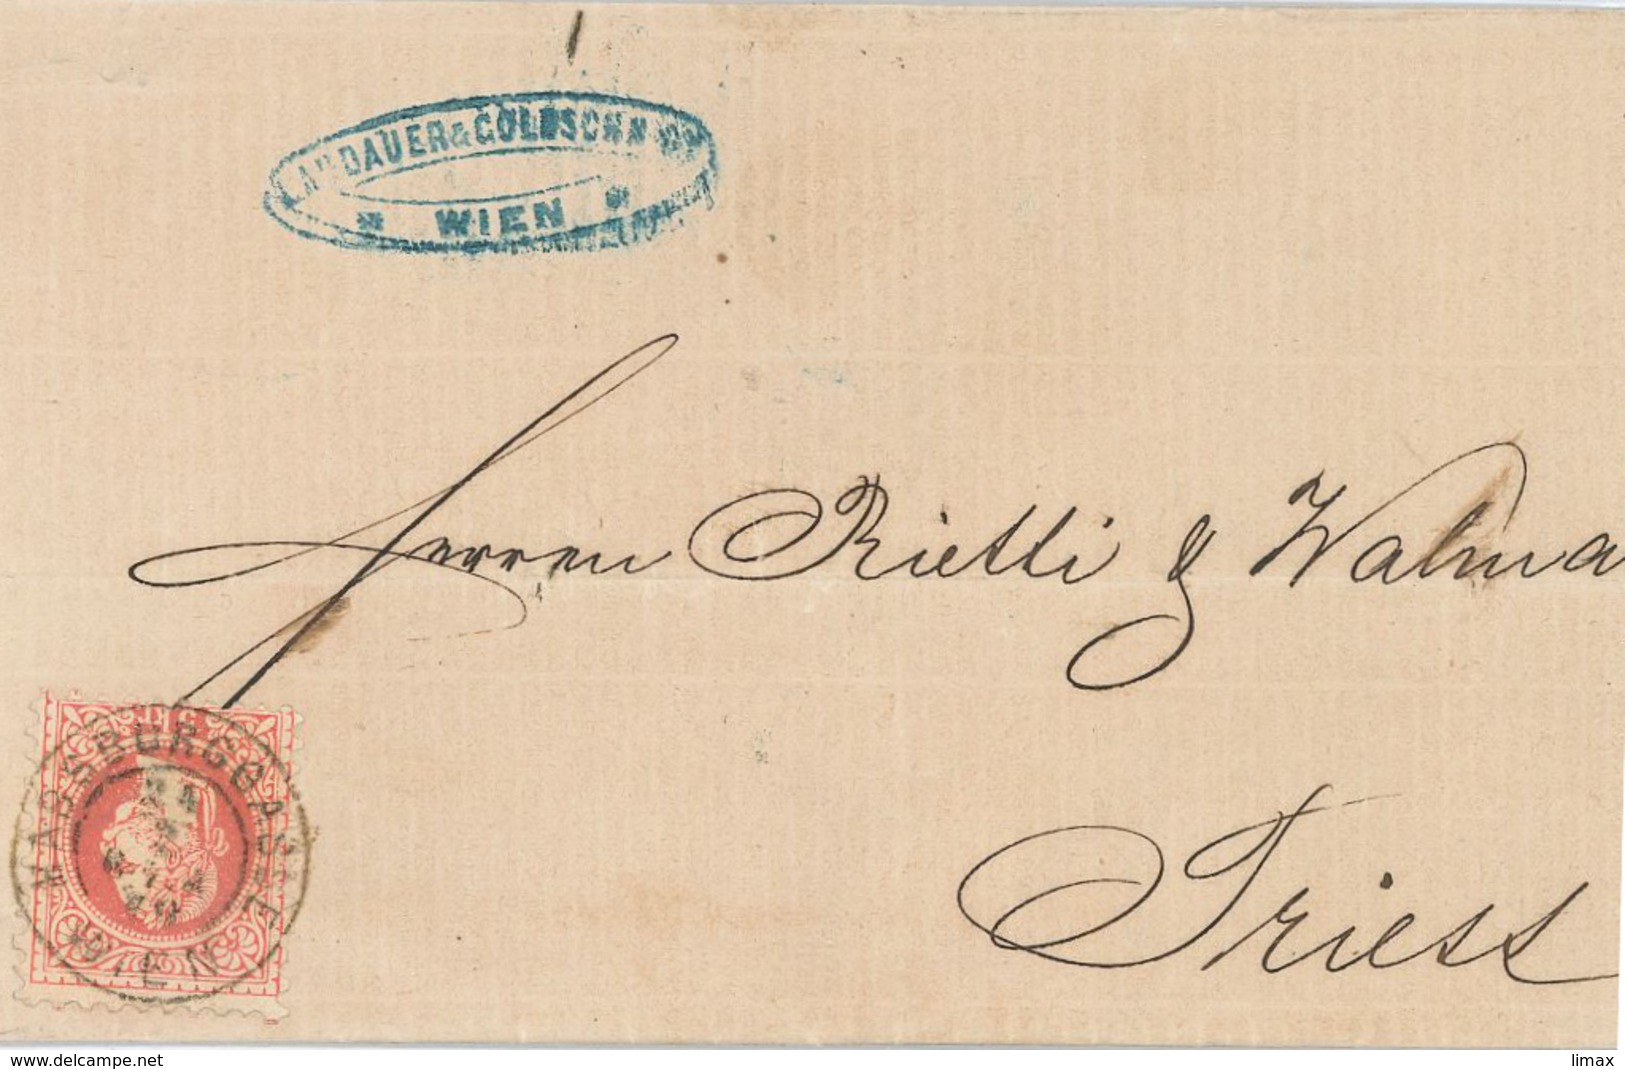 LANDAUER & GOLDSCHMIDT
* WIEN *
Herren Rietti & Walma
Triest
5 KR
HABSBURGGASSE
WIEN
www.delcampe.net
limax